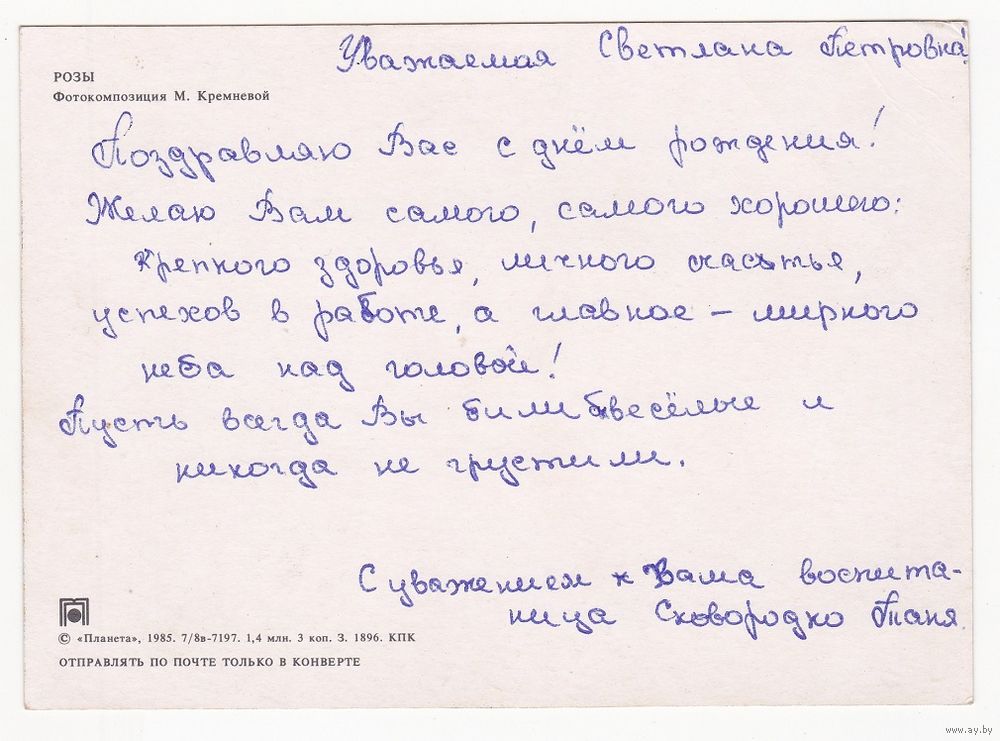 Уважаемая Светлана Петровна!
РОЗЫ
Фотокомпозиция М. Кремневой
Поздравляю Вас с днём рождения!
Желаю Вам самого, самого хорошего:
крепкого здоровья, личного счастья,
успехов в работе, а главное – мирного
неба над головой!
Пусть всегда Вы были весёлые и
никогда не грустили.
С уважением к Вама воспита-
ница Сковородко Таня.
© «Планета», 1985. 7/8в-7197. 1,4 млн. 3 коп. З. 1896. КПК
ОТПРАВЛЯТЬ ПО ПОЧТЕ ТОЛЬКО В КОНВЕРТЕ
www.ay.by